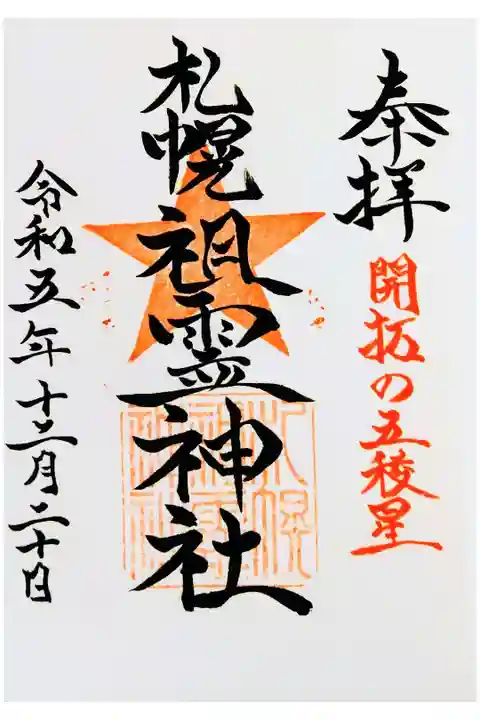 奉拝
開拓の五稜星
札幌祖霊神社
令和五年十二月二十日